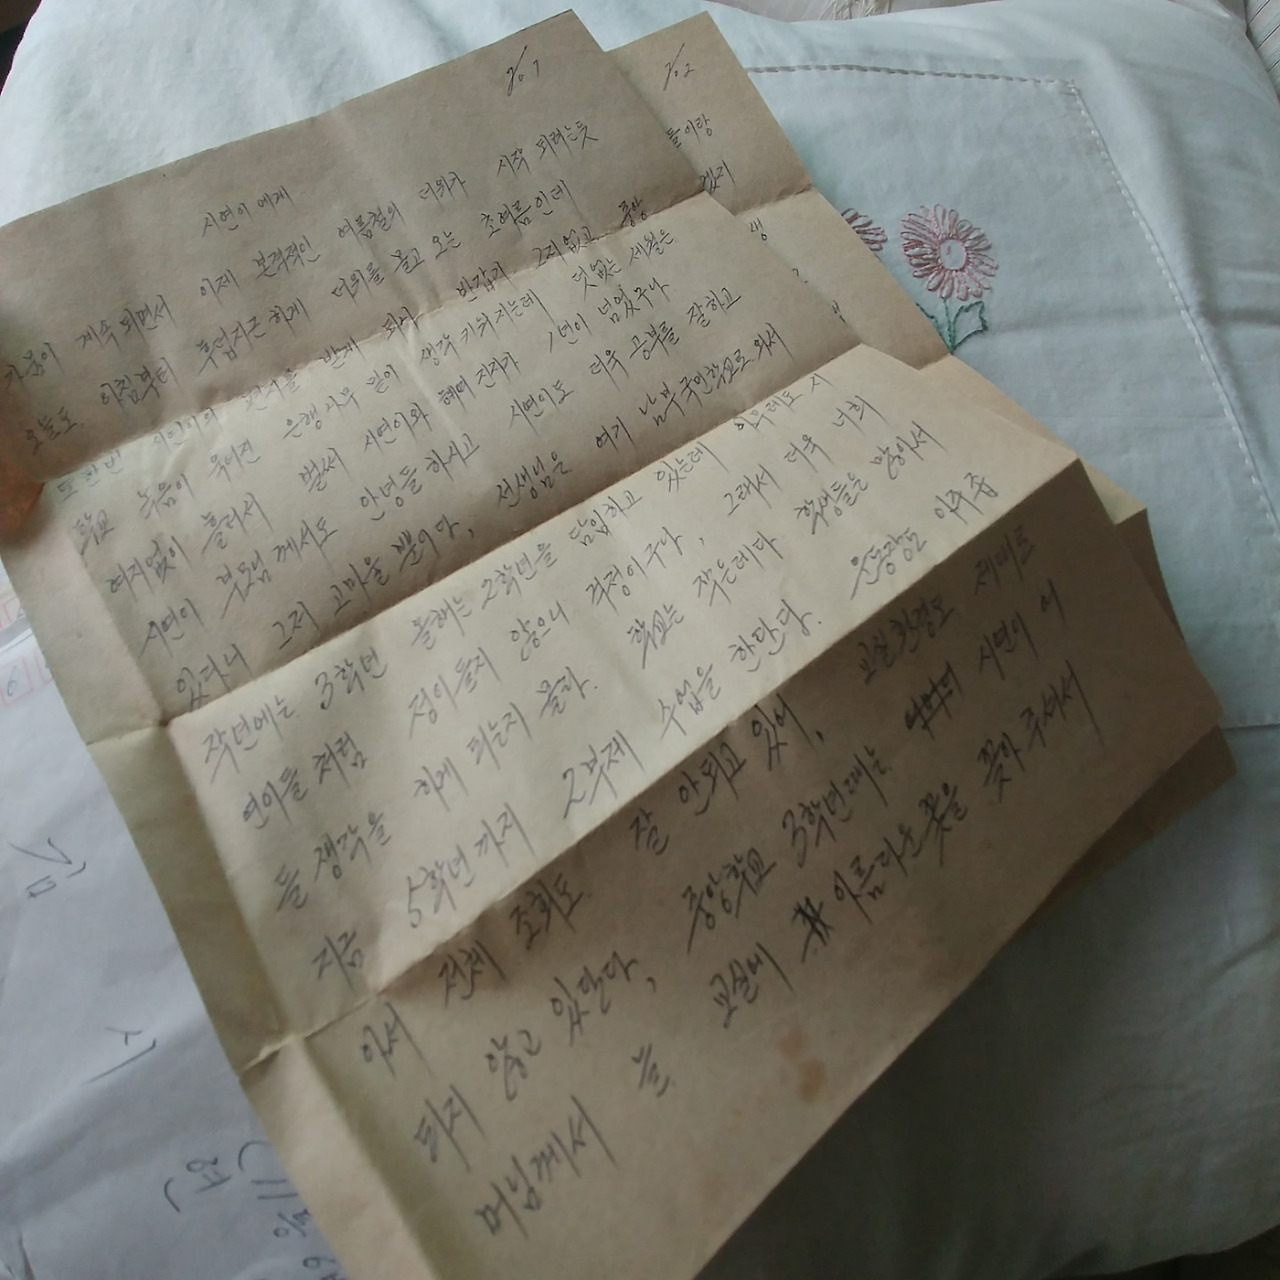 No 1
시연이 에게
가뭄이 계속 되면서 이제 본격적인 여름철의 더위가 시작 되려는듯
오늘도 아침부터 후덥지근 하게 더위를 몰고 오는 초여름인데
또한번 시연이의 편지를 받게 되서 반갑기 그지없고 중앙
학교 녹음이 우거진 은행나무 밑이 생각 키워지는데 덧없는 세월은
여지없이 흘러서 벌써 시연이와 헤여진지가 1년이 넘었구나
시연이 부모님 께서도 안녕들 하시고 시연이도 더욱 공부를 잘하고
있다니 그저 고마울 뿐이다, 선생님은 여기 남부 국민학교로 와서
작년에는 3학년 올해는 2학년을 담임하고 있는데 아무래도 시
연이들 처럼 정이들지 않으니 걱정이구나, 그래서 더욱 너희
들 생각을 하게 되는지 몰라. 학교는 작은데다 학생들은 많아서
지금 5학년까지 2부제 수업을 한단다. 운동장도 아주 좁
아서 전체 조회도 잘 안되고 있어, 교실환경도 제대로
되지 않고 있단다, 중앙학교 3학년때는 시연이 어
머님께서 늘 교실에 아름다운 꽃을 꽂아 주셔서
No 2
들이랑
있지
생